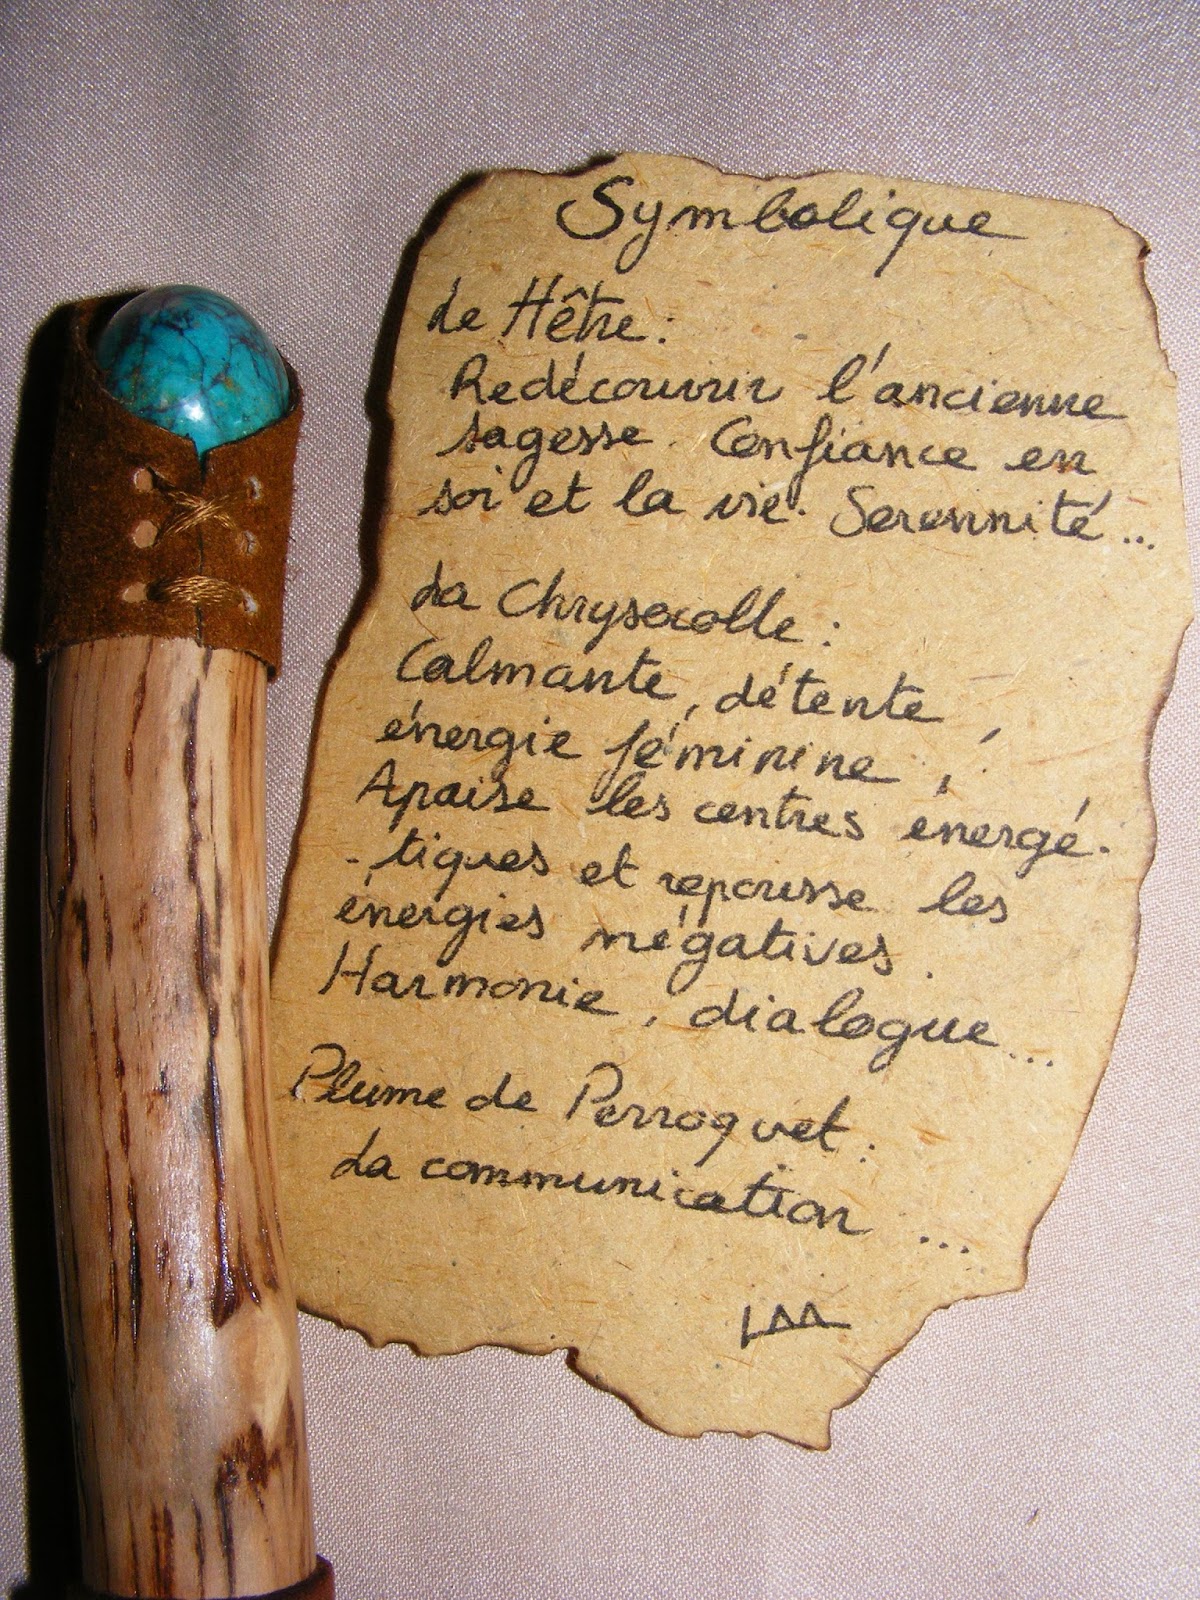 Symbolique
Le Hêtre :
Redécouvrir l'ancienne
sagesse. Confiance en
soi et la vie. Serennité...
La Chrysocolle :
Calmante, détente,
énergie féminine,
Apaise les centres énergé-
-tiques et repousse les
énergies négatives.
Harmonie, dialogue...
Plume de Perroquet :
La communication ...